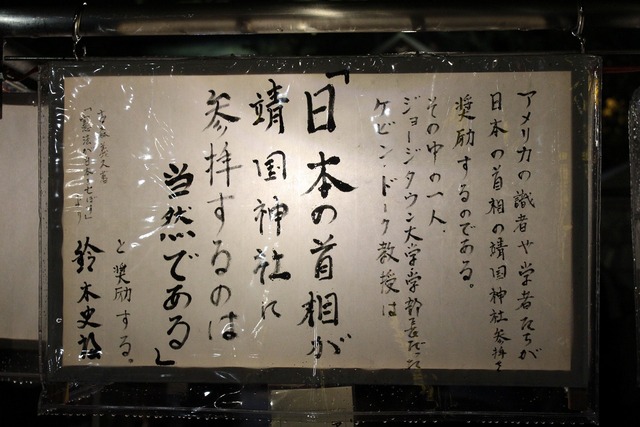 アメリカの識者や学者たちが
日本の首相の靖国神社参拝を
奨励するのである。
その中の一人、
ジョージタウン大学学部長だった
ケビン・ドーク教授は
「日本の首相が
靖国神社に
参拝するのは
当然である」
と奨励する。
より
鈴木史朗